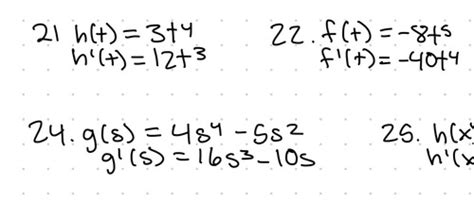 21 h(t) = 3t⁴
h'(t) = 12t³
22. f(t) = -8t⁵
f'(t) = -40t⁴
24. g(s) = 4s⁴ - 5s²
g'(s) = 16s³ - 10s
25. h(x
h'(x